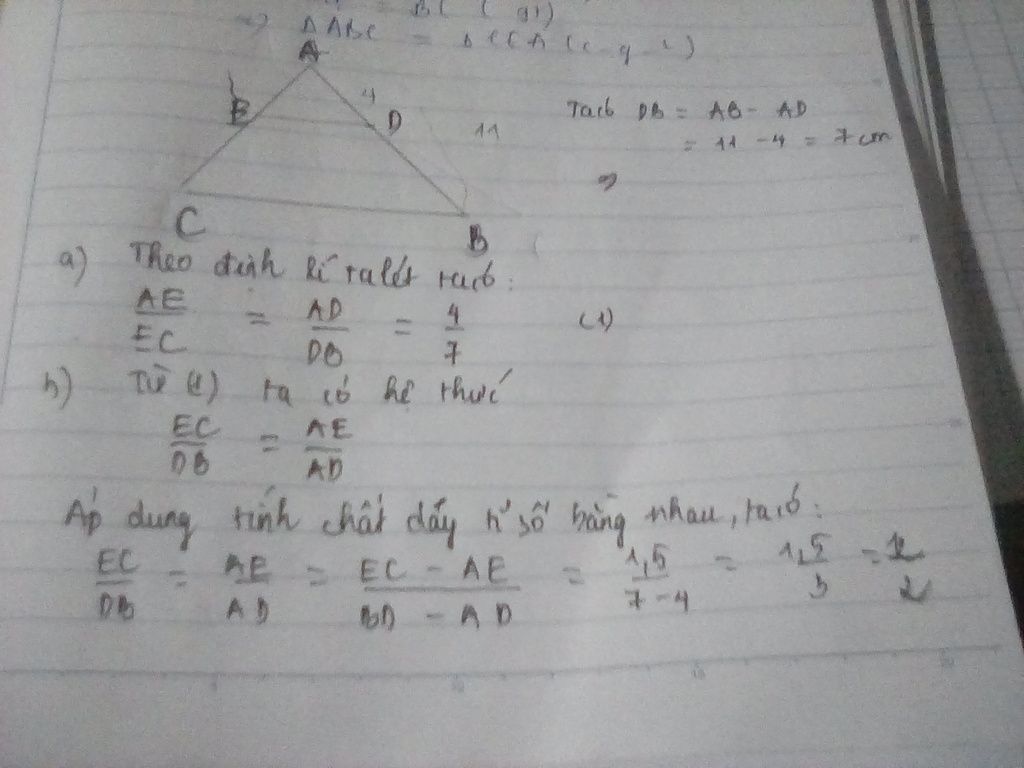 = BC (gt)
=> ΔABC = ΔCCA (c-g-c)
A
E
4
D
11
C
B
Ta có DB = AB - AD
= 11 - 4 = 7cm
=>
a) Theo định lí talét ta có:
AE/EC = AD/DB = 4/7 (1)
b) Từ (1) ta có hệ thức
EC/DB = AE/AD
Áp dụng tính chất dãy tỉ số bằng nhau, ta có:
EC/DB = AE/AD = EC - AE/BD - AD = 1,5/7-4 = 1,5/3 = 1/2